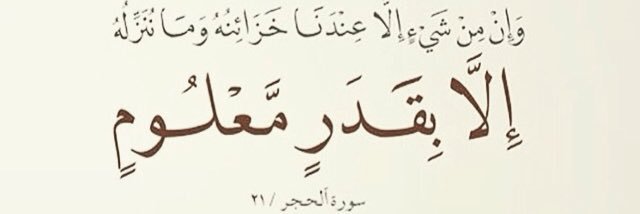 وَإِنْ مِنْ شَيْءٍ إِلَّا عِنْدَنَا خَزَائِنُهُ وَمَا نُنَزِّلُهُ
إِلَّا بِقَدَرٍ مَّعْلُومٍ
سورة الحجر / ٢١